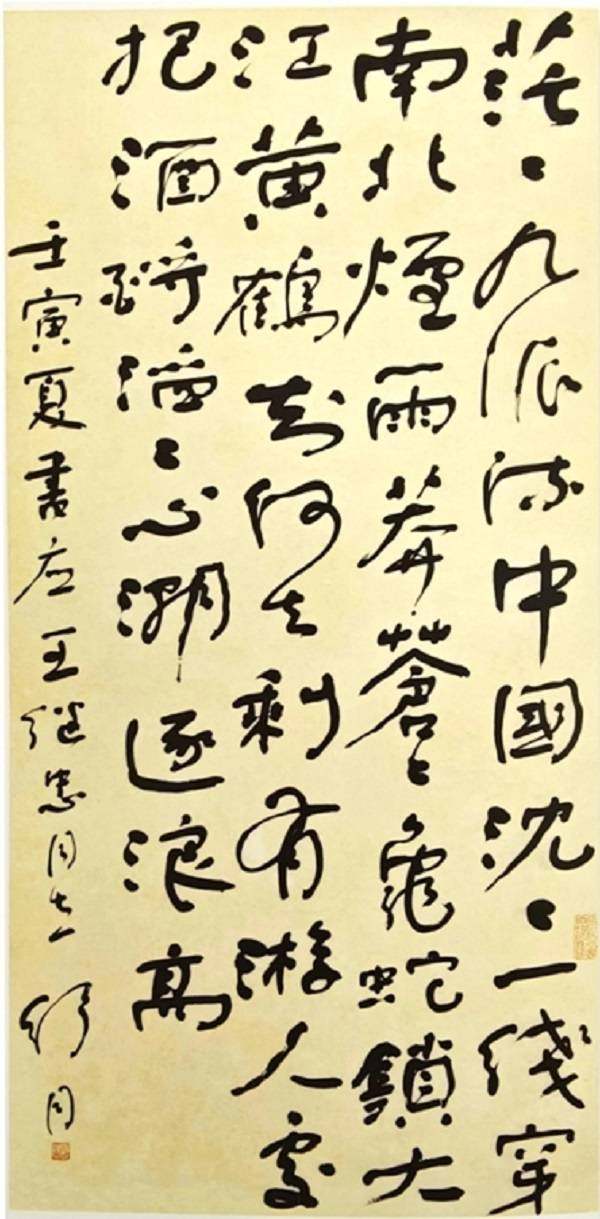 茫〻九派流中國沈〻一綫穿
南北煙雨莽蒼〻龜蛇鎖大
江黃鶴知何去剩有游人處
把酒酹滔〻心潮逐浪高
壬寅夏書应王继忠同志 舒同